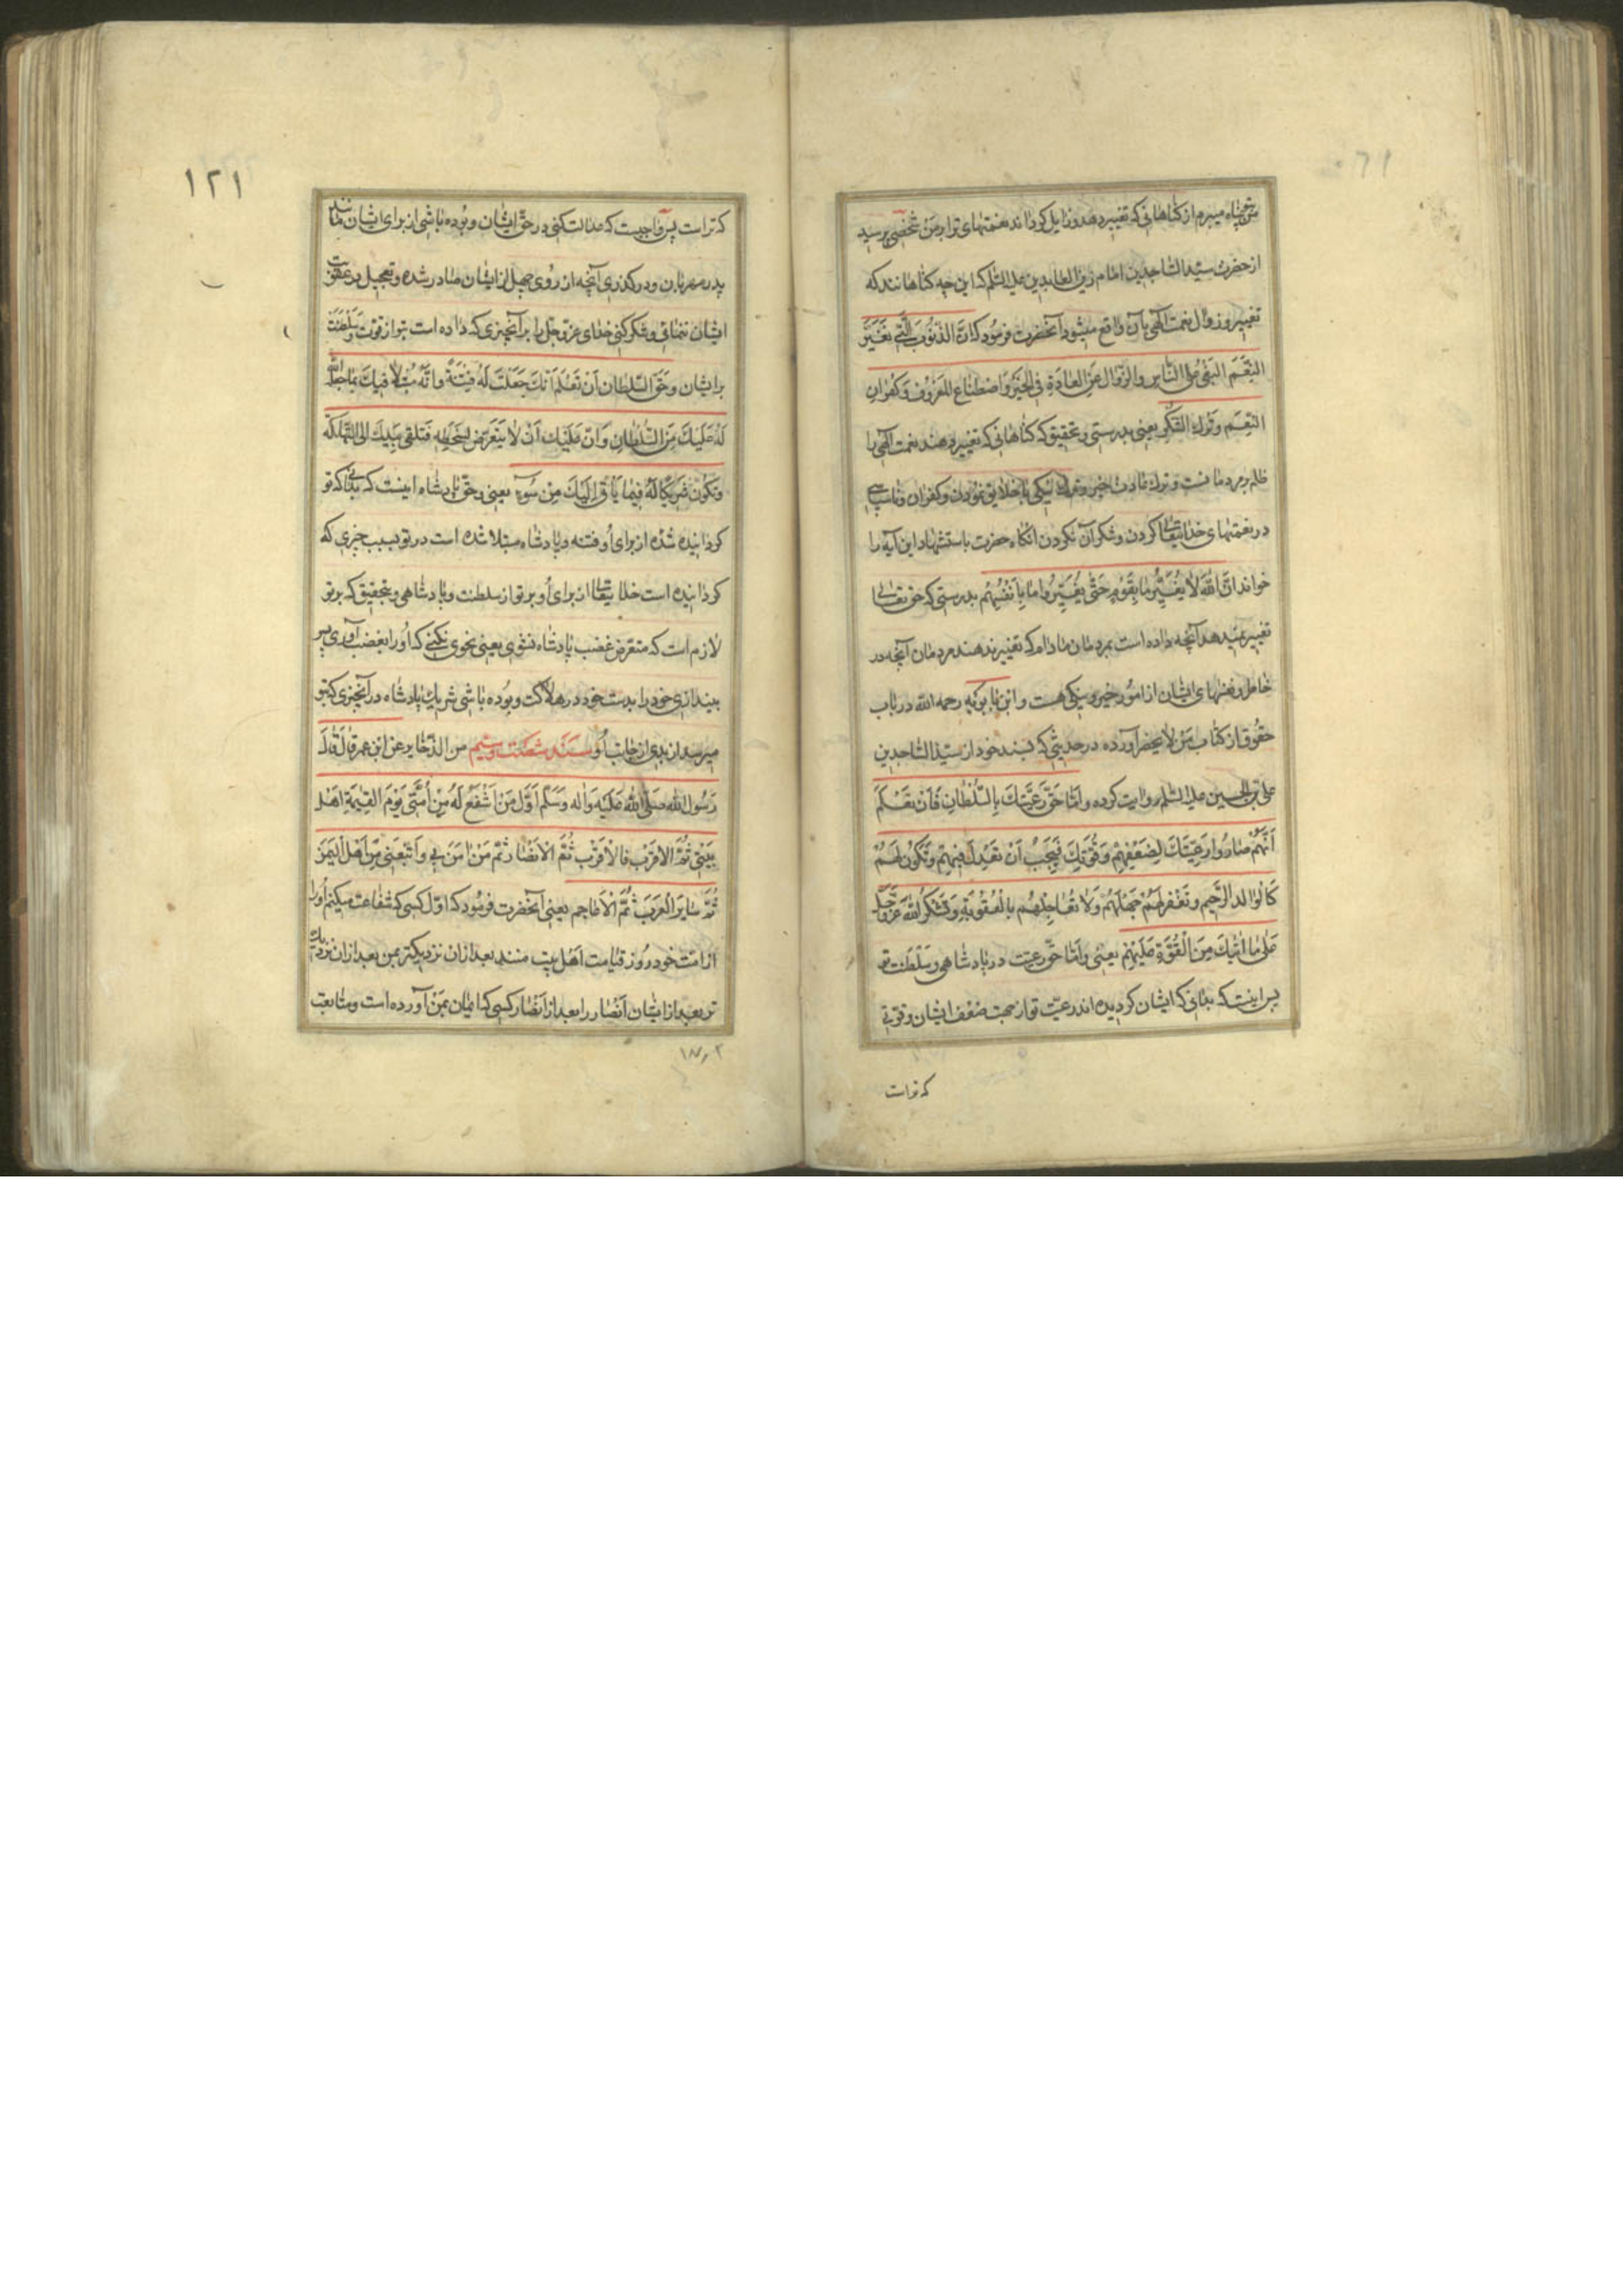 پناه میبرم از گناهانی که تغییر دهند و زایل گردانند نعمتهای ترا بر من شخصی پرسید
از حضرت سیّد السّاجدین امام زین العابدین علیه السّلم که این چه گناهانند که
تغییر و زوال نعمت الٓهی بآن واقع میشود آنحضرت فرمود که انّ الذّنُوبَ الَّتی تُغَیِّرُ
النِّعَمَ البَغیُ عَلَی النّاسِ وَ الزَّوالُ عَنِ العادَةِ فِی الخَیْرِ وَ اصْطِناعِ المَعْرُوفِ وَ کُفْرانِ
النِّعَمِ وَ تَرْكِ الشُّکْرِ یعنی بدرستی و تحقیق که گناهانی که تغییر دهند نعمت الٓهی را
ظلم بر مردمانست و ترك عادت خیر و ترك نیکی با خلایق نمودن و کفران و ناسپاسی
در نعمتهای خدایتعالی کردن و شکر آن نکردن آنگاه حضرت باستشهاد این آیه را
خواند انَّ اللهَ لا یُغَیِّرُ ما بِقَوْمٍ حَتّی یُغَیِّرُوا ما بِاَنْفُسِهِمْ بدرستی که حق تعالی
تغییر نمیدهد آنچه داده است بمردمان مادام که تغییر ندهند مردمان آنچه در
خاطر و نفسهای ایشان از امور خیر و نیکی هست و ابن بابویه رحمه الله در باب
حقوق از کتاب من لا یحضر آورده در حدیثی که بسند خود از سیّد السّاجدین
علی بن الحسین علیه السّلم روایت کرده و اَمّا حَقُّ رَعِیَّتِكَ بِالسُّلْطانِ فَاَنْ تَعْلَمَ
اَنَّهُمْ صارُوا رَعِیَّتَكَ لِضَعْفِهِمْ وَ قُوَّتِكَ فَیَجِبُ اَنْ تَعْدِلَ فِیهِمْ وَ تَکُونَ لَهُمْ
کَالْوالِدِ الرَّحیمِ وَ تَغْفِرَ لَهُمْ جَهْلَهُمْ وَ لا تُعاجِلَهُمْ بِالْعُقُوبَةِ وَ تَشْکُرَ اللهَ عَزَّ وَ جَلَّ
عَلی ما اٰتیكَ مِنَ الْقُوَّةِ عَلَیْهِمْ یعنی و اَمّا حقّ رعیّت در پادشاهی و سلطنت تو
پس اینست که بدانی که ایشان گردیده اند رعیّت تو از جهت ضعف ایشان و قوتی
که تراست
۱۲۱
که تراست پس واجبست که عدالت کنی در حقّ ایشان و بوده باشی از برای ایشان مانند
پدر مهربان و درگذری آنچه از روی جهل از ایشان صادر شده و تعجیل در عقوبت
ایشان ننمائی و شکر کنی خدای عزّ و جلّ را بر آنچیزی که داده است بتو از قوّت و سلطنت
بر ایشان و حَقُّ السُّلْطان اَنْ تَعْلَمَ اَنَّكَ جُعِلْتَ لَهُ فِتْنَةً و اَنَّهُ مُبْتَلاً فیكَ بِما جَعَلَ الله
لَهُ عَلَیْكَ مِنَ السُّلْطانِ وَ انَّ عَلَیْكَ اَنْ لا تَتَعَرَّضَ لِسَخَطِهِ فَتُلْقی بِیَدِكَ الی التَّهْلُکَة
وَ تَکُونَ شَریکاً لَهُ فیما یَأتی اِلَیْكَ مِنْ سُوء یعنی و حقّ پادشاه اینست که بدانی که تو
گردانیده شده از برای او فتنه و پادشاه مبتلا شده است در تو بسبب چیزی که
گردانیده است خدایتعالی از برای او بر تو از سلطنت و پادشاهی و بتحقیق که بر تو
لازم است که متعرّض غضب پادشاه نشوی یعنی نحوی نکنی که او را بغضب آوری پس
بیندازی خود را بدست خود در هلاکت و بوده باشی شریك پادشاه در آنچیزی که بتو
میرسد از بدی از جانب او سند شصت و سیم من الذّخایر عن ابن عمر قالَ قالَ
رَسُولُ الله صَلَّی اللهُ عَلَیْهِ وَ اٰلِه وَ سَلَّمَ اَوَّلُ مَنْ اَشْفَعُ لَهُ مِنْ اُمَّتی یَوْمَ القِیٰمَةِ اَهْلُ
بَیْتی ثُمَّ الاَقْرَبُ فَالاَقْرَبُ ثُمَّ الاَنْصارُ ثُمَّ مَنْ اٰمَنَ بی وَ اتَّبَعَنی مِنْ اَهْلِ الْیَمَنِ
ثُمَّ سایرُ الْعَرَبِ ثُمَّ الْاَعاجِم یعنی آنحضرت فرمود که اوّل کسی که شفاعت میکنم او را
از امّت خود روز قیامت اَهْل بیت منند بعد از ان نزدیکتر بمن بعد از ان نزدیك
تر بعد از ایشان اَنصار را بعد از اَنصار کسی که ایمان بمن آورده است و متابعت